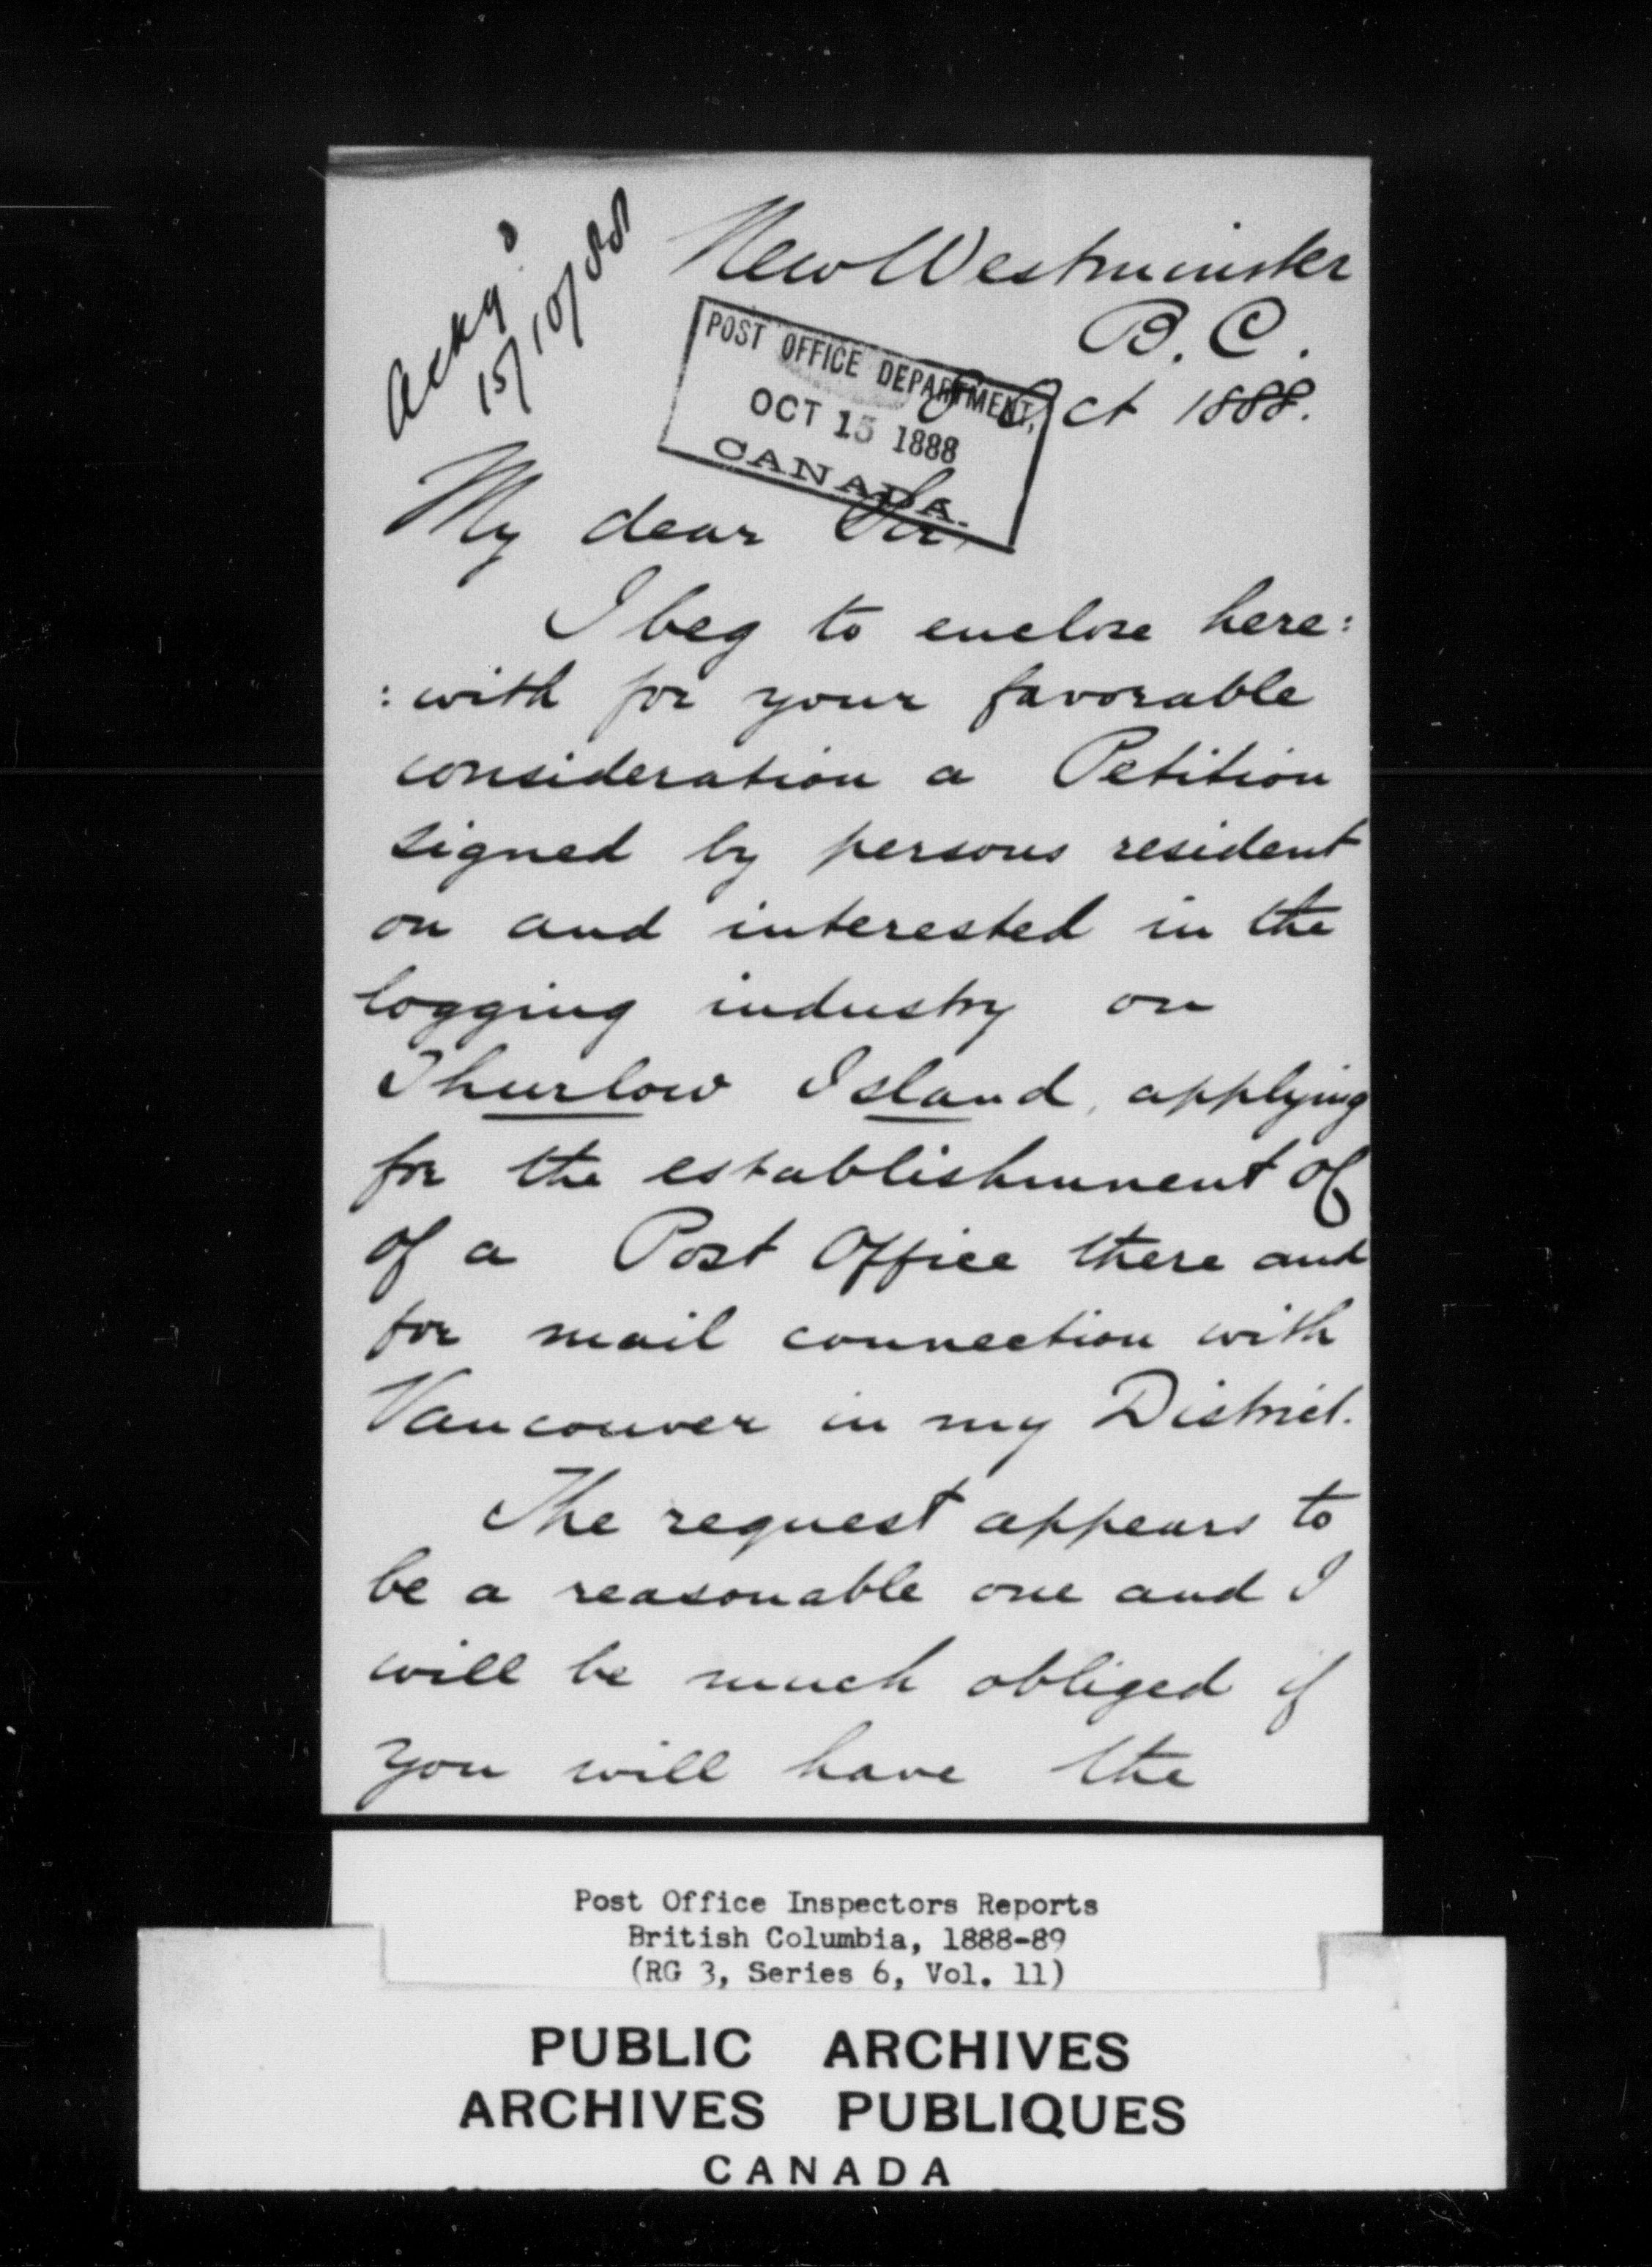 Ackd
15/10/88
New Westminster
B.C.
8 Oct 1888.
POST OFFICE DEPARTMENT,
OCT 15 1888
CANADA.
My dear Sir,
I beg to enclose here:
: with for your favorable
consideration a Petition
signed by persons resident
on and interested in the
logging industry on
Thurlow Island, applying
for the establishmnent of
of a Post Office there and
for mail connection with
Vancouver in my District.
The request appears to
be a reasonable one and I
will be much obliged if
you will have the
Post Office Inspectors Reports
British Columbia, 1888-89
(RG 3, Series 6, Vol. 11)
PUBLIC ARCHIVES
ARCHIVES PUBLIQUES
CANADA